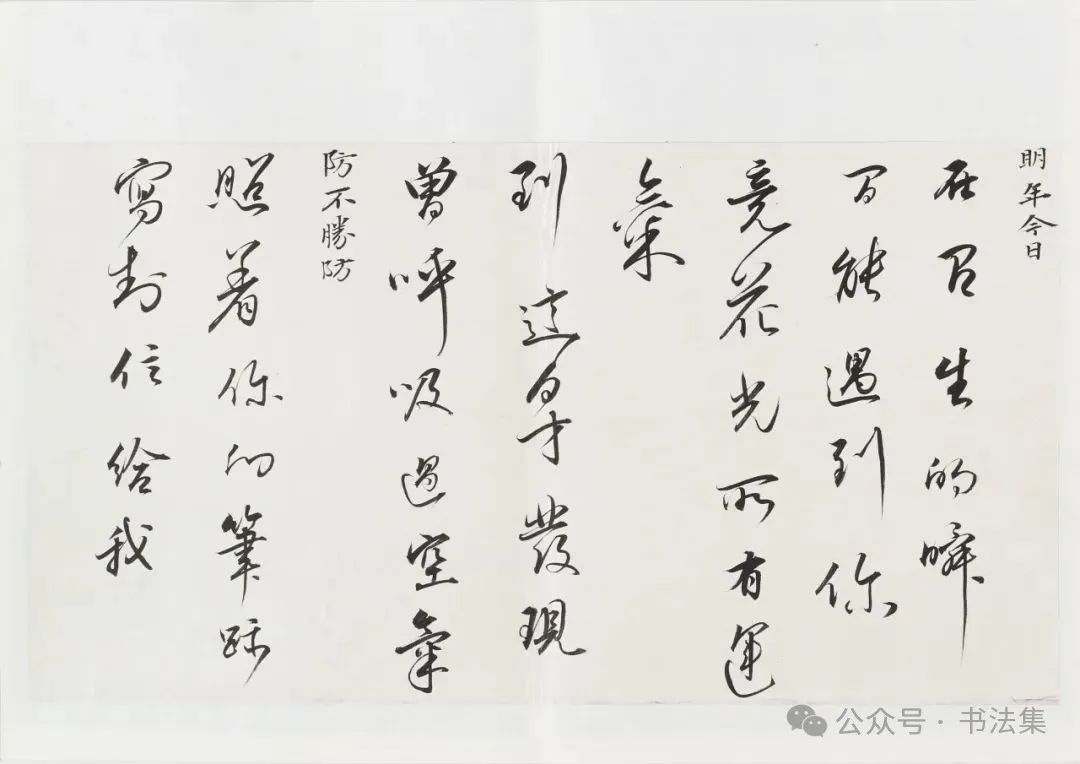 明年今日
在有生的瞬
間能遇到你
竟花光所有運
氣
到這日才發現
曾呼吸過空氣
防不勝防
照着你的筆跡
寫封信給我
公众号 · 书法集